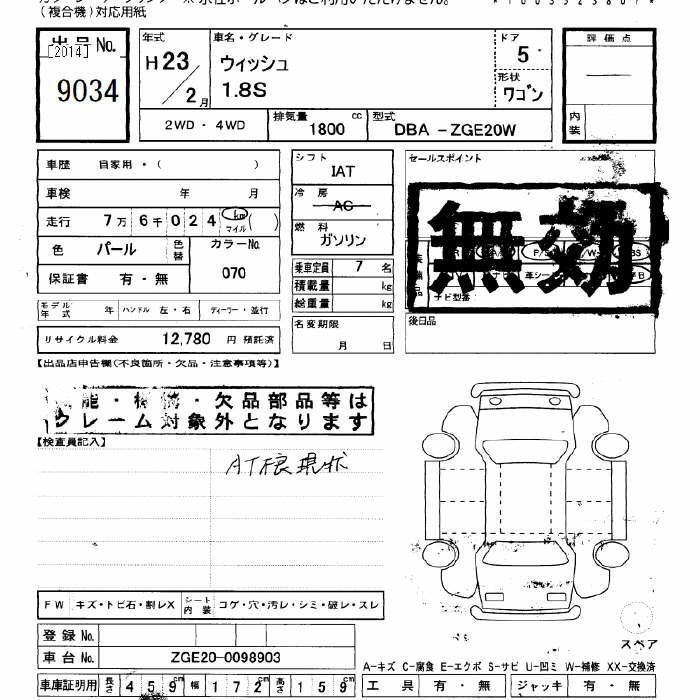 (複合機)対応用紙
出品No.
[2014]
9034
年式
H23
2月
車名・グレード
ウィッシュ
1.8S
ドア
5
形状
ワゴン
評価点
内装
2WD・4WD
排気量
1800 cc
型式
DBA-ZGE20W
車歴 自家用・( )
車検 年 月
走行 7万6千024 km マイル ( )
色 パール 色替
カラーNo.
070
保証書 有・無
モデル年式 年 ハンドル 左・右 ディーラー・並行
リサイクル料金 12,780 円 預託済
シフト
IAT
冷房
AC
燃料
ガソリン
乗車定員 7 名
積載量 kg
総重量 kg
名変期限
月 日
セールスポイント
無効
ナビ型番
後日品
【出品店申告欄(不良箇所・欠品・注意事項等)】
能・機構・欠品部品等は
クレーム対象外となります
【検査員記入】
FW キズ・トビ石・割レX
シート内装 コゲ・穴・汚レ・シミ・破レ・スレ
登録No.
車台No. ZGE20-0098903
車庫証明用 長さ 459cm 幅 172cm 高さ 159cm
スペア
A-キズ C-腐食 E-エクボ S-サビ U-凹ミ W-補修 XX-交換済
工具 有・無 ジャッキ 有・無